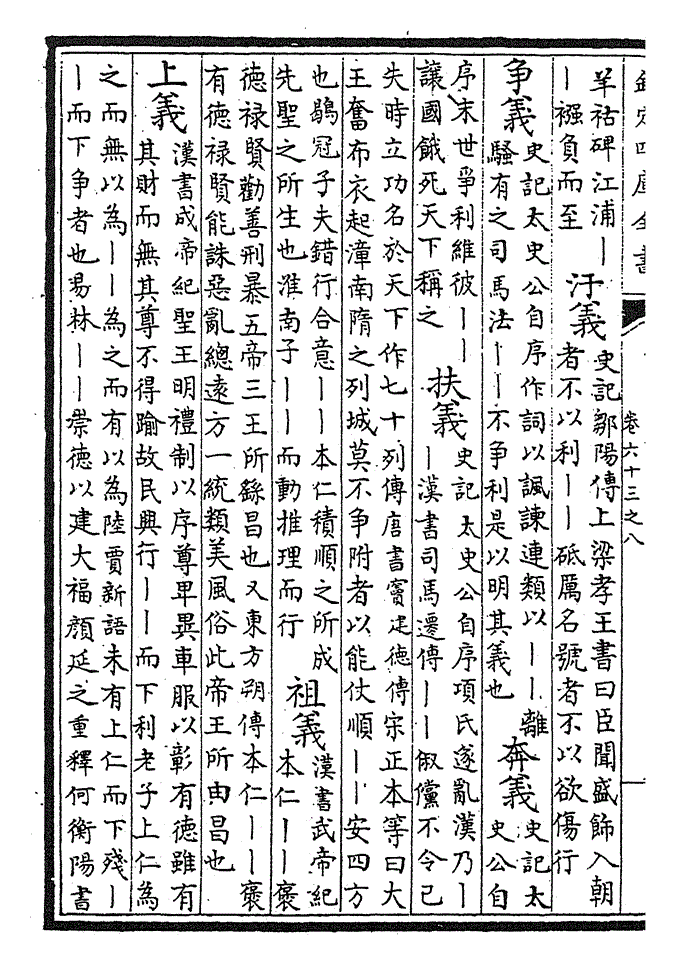 欽定四庫全書
卷六十三之八
羊祜碑江浦丨
丨襁負而至
汙義
史記鄒陽傳上梁孝王書曰臣聞盛飾入朝
者不以利丨丨砥厲名號者不以欲傷行
争義
史記太史公自序作詞以諷諫連類以丨丨離
騷有之司馬法丨丨不争利是以明其義也
奔義
史記太
史公自
序末世爭利維彼丨丨
讓國餓死天下稱之
扶義
史記太史公自序項氏遂亂漢乃丨
丨漢書司馬遷傳丨丨俶儻不令已
失時立功名於天下作七十列傳唐書竇建德傳宋正本等曰大
王奮布衣起漳南隋之列城莫不争附者以能仗順丨丨安四方
也鶡冠子夫錯行合意丨丨本仁積順之所成
先聖之所生也淮南子丨丨而動推理而行
祖義
漢書武帝紀
本仁丨丨褒
德禄賢勸善刑暴五帝三王所繇昌也又東方朔傳本仁丨丨褒
有德禄賢能誅惡亂總遠方一統類美風俗此帝王所由昌也
上義
漢書成帝紀聖王明禮制以序尊卑異車服以彰有德雖有
其財而無其尊不得踰故民興行丨丨而下利老子上仁為
之而無以為丨丨為之而有以為陸賈新語未有上仁而下殘丨
丨而下争者也易林丨丨崇德以建大福顔延之重釋何衡陽書